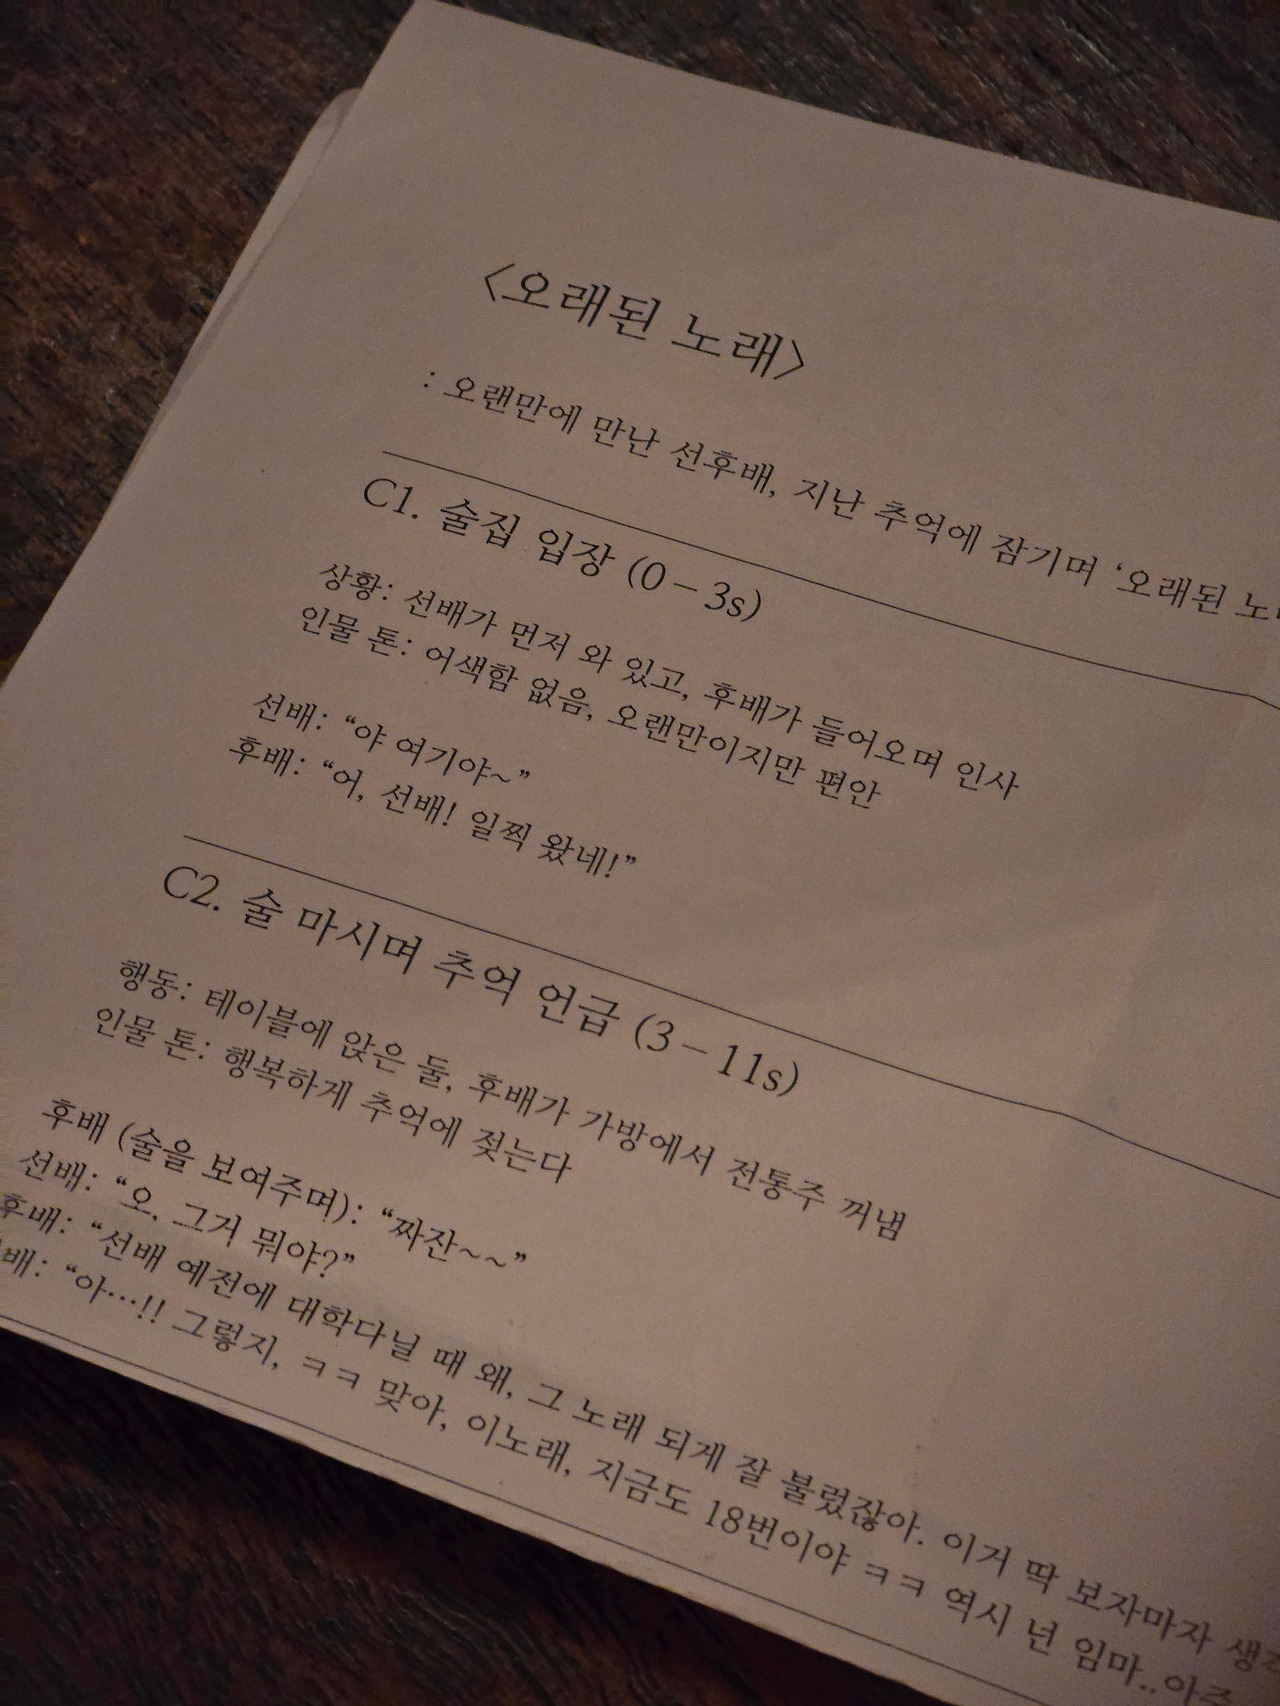 <오래된 노래>
: 오랜만에 만난 선후배, 지난 추억에 잠기며 ‘오래된
C1. 술집 입장 (0 – 3s)
상황: 선배가 먼저 와 있고, 후배가 들어오며 인사
인물 톤: 어색함 없음, 오랜만이지만 편안
선배: “야 여기야~”
후배: “어, 선배! 일찍 왔네!”
C2. 술 마시며 추억 언급 (3 – 11s)
행동: 테이블에 앉은 둘, 후배가 가방에서 전통주 꺼냄
인물 톤: 행복하게 추억에 젖는다
후배 (술을 보여주며): “짜잔~~”
선배: “오, 그거 뭐야?”
후배: “선배 예전에 대학다닐 때 왜, 그 노래 되게 잘 불렀잖아. 이거 딱 보자마자
배: “아…!! 그렇지, ㅋㅋ 맞아, 이노래, 지금도 18번이야 ㅋㅋ 역시 넌 임마..